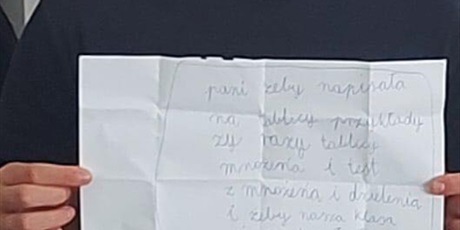 pani żeby napisała
na tablicy przykłady
zy razy tablicy
mnożenia i test
z mnożenią i dzielenią
i żeby nasza klasa